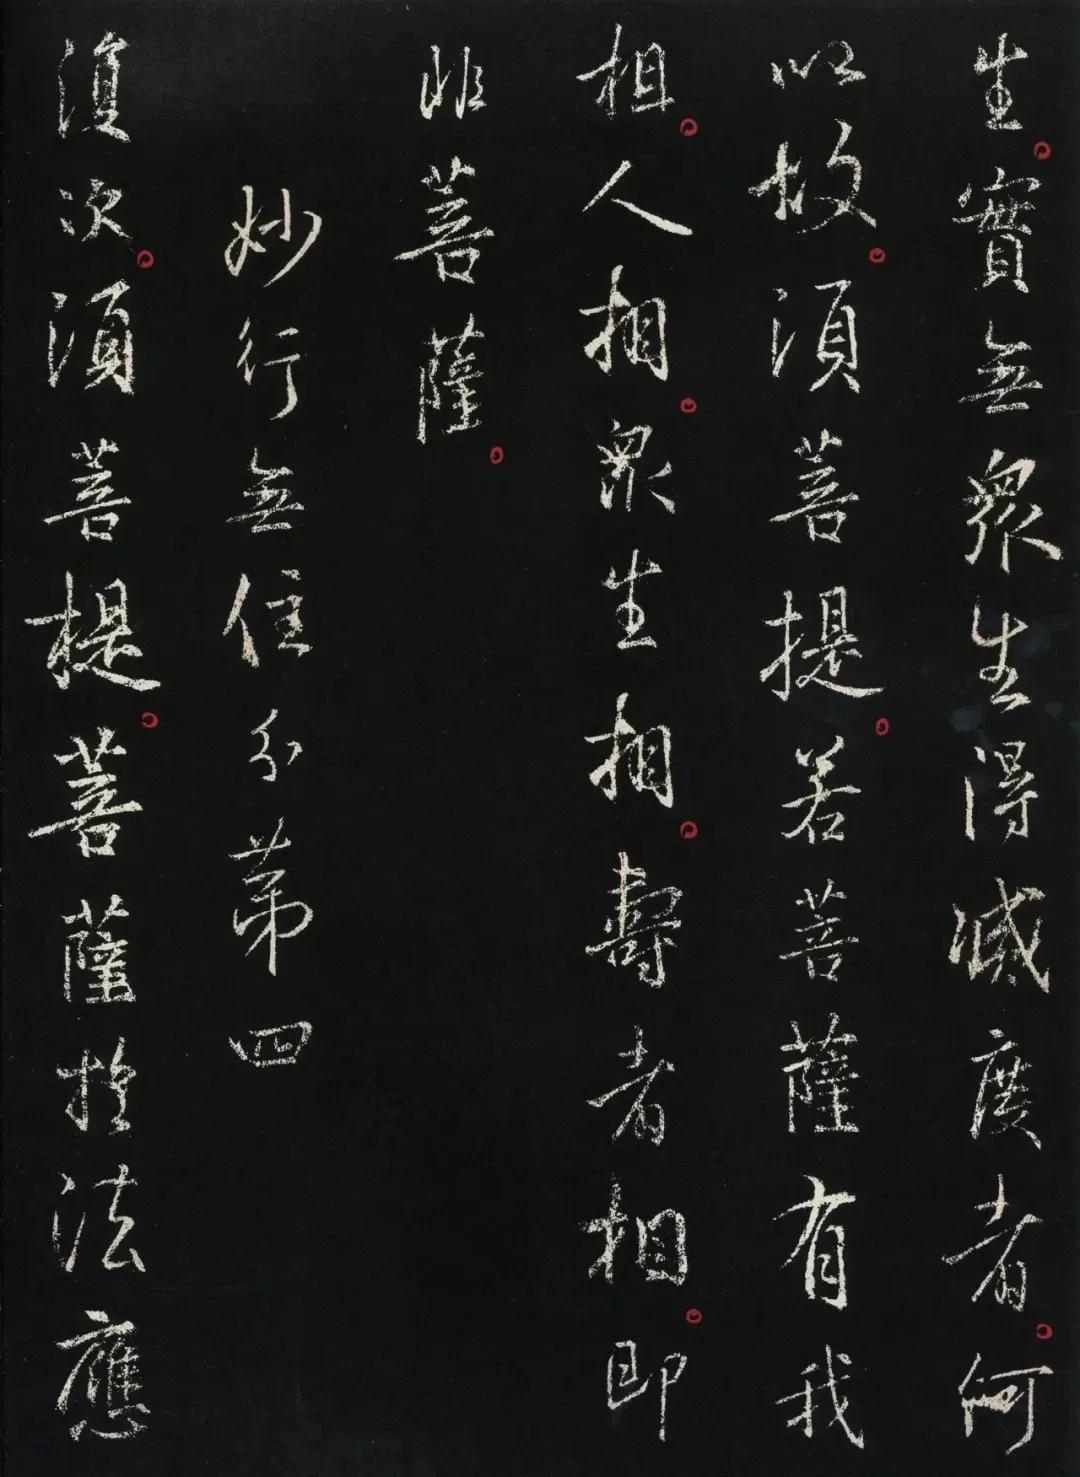 生實無眾生得滅度者何
以故須菩提若菩薩有我
相人相眾生相壽者相即
非菩薩
妙行無住分第四
復次須菩提菩薩於法應